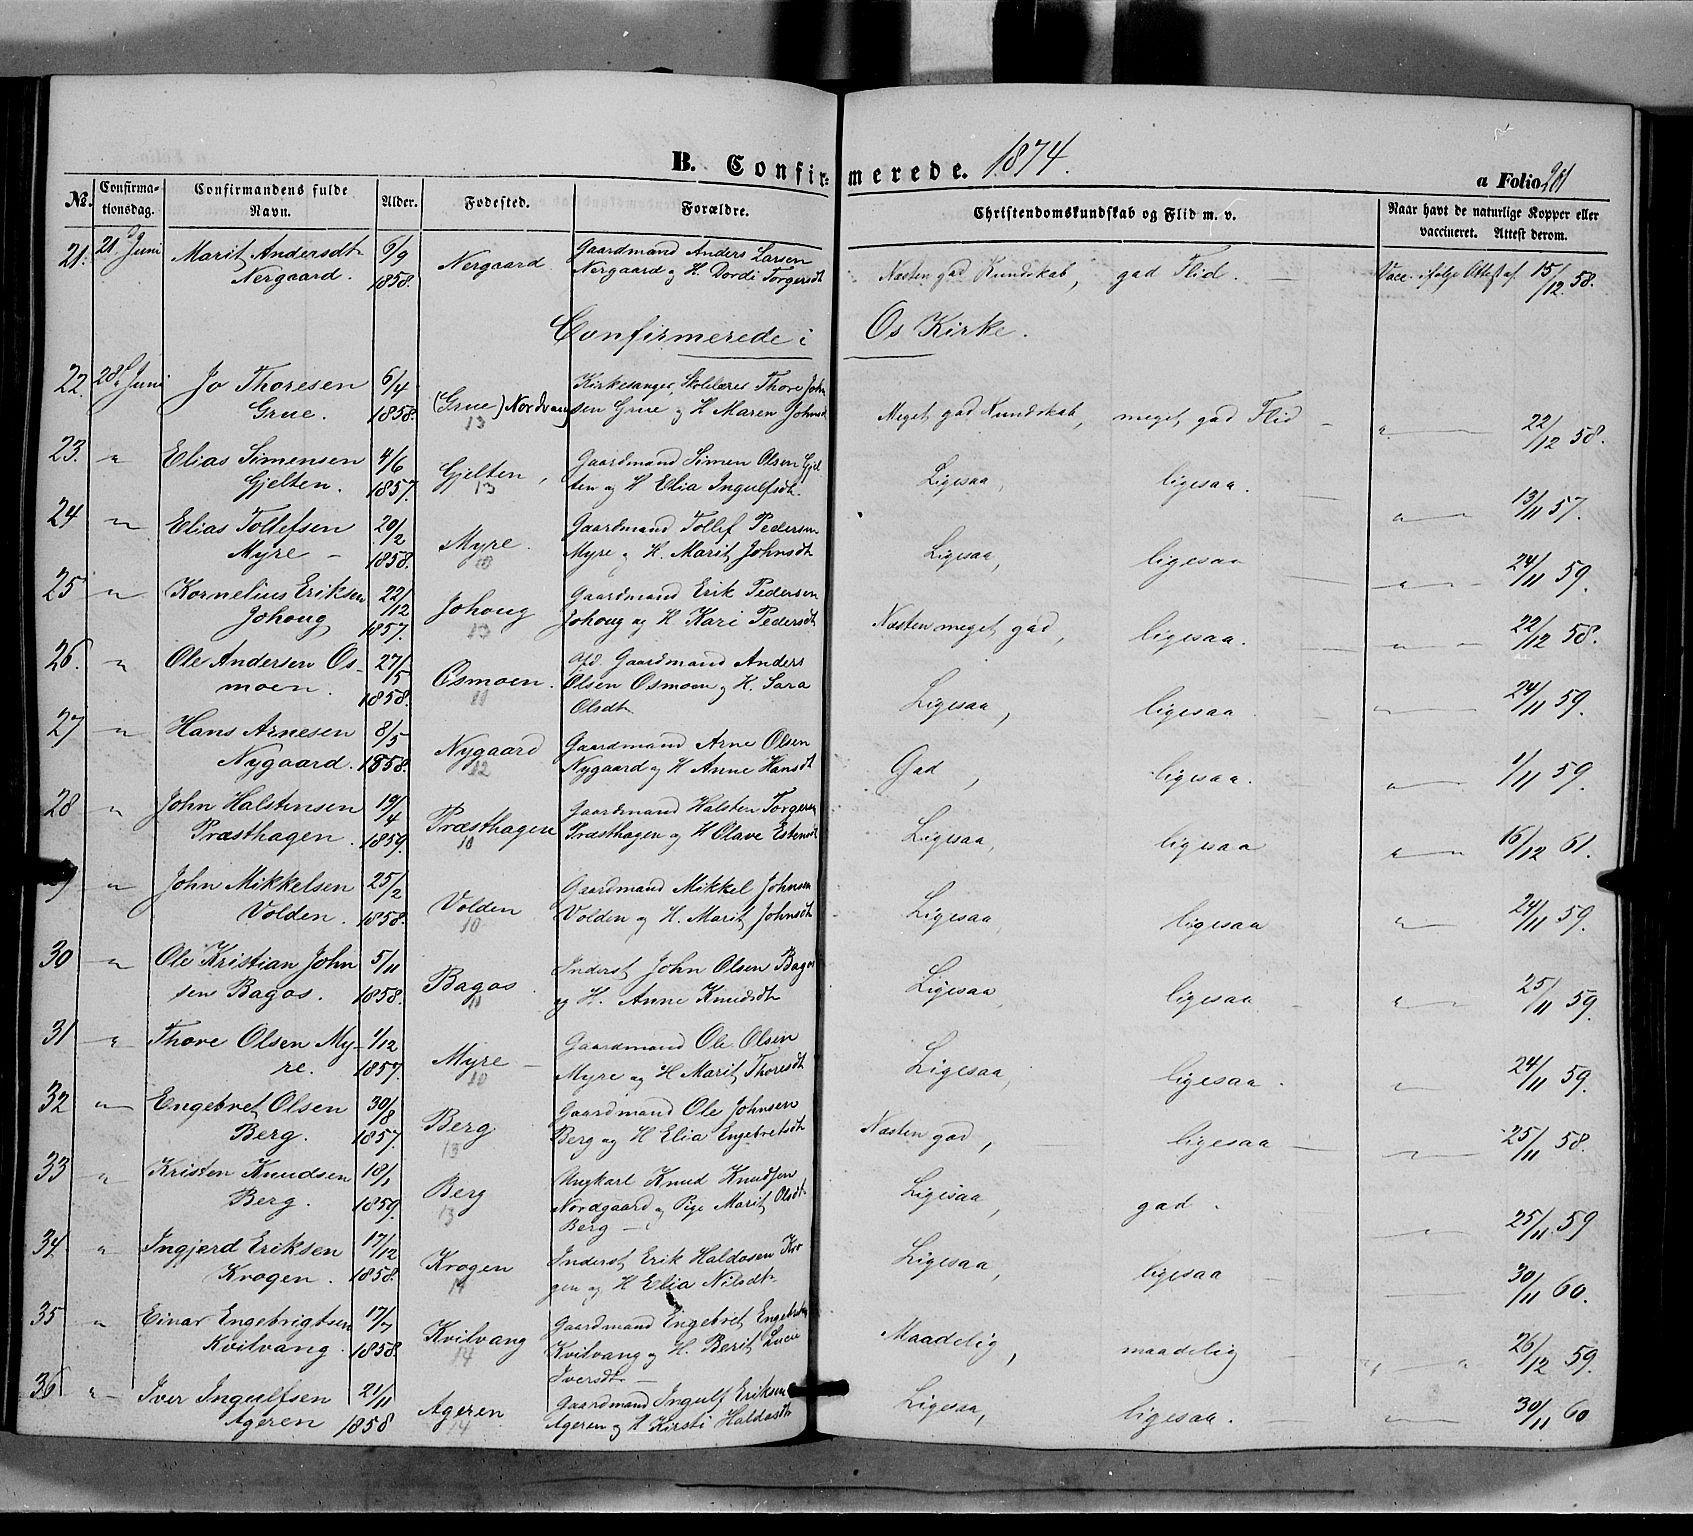 B. Confirmerede. 1874.
a Folio 201
No. Confirmationsdag. Confirmandens fulde Navn. Alder. Fødested. Forældre. Christendomskundskab og Flid m. v. Naar havt de naturlige Kopper eller vaccineret. Attest derom.
21. 21de Juni Marit Andersdt 6/9 Nergaard Gaardmand Anders Larsen
Nergaard. 1858. Nergaard og H. Dordi Torgersdt Næsten god Kundskab, god Flid. — Vacc. ifølge Attest af 15/12 58.
Confirmerede i Os Kirke.
22. 28de Juni Jo Thoresen 6/4 Kirkesanger, Skolelærer Thore John
Grue. 1858. (Grue) Nordvang 13 sen Grue og H Maren Johnsdt Meget god Kundskab, meget god Flid — " — 22/12 58.
23. " Elias Simensen 4/6 Gjelten, Gaardmand Simen Olsen Gjel
Gjelten. 1857. 13 ten og H Elia Ingulfsdt. Ligesaa, ligesaa. — " — 13/11 57.
24 " Elias Tollefsen 20/2 Myre. Gaardmand Tollef Pedersen
Myre — 1858. 10 Myre og H. Marit Johnsdt Ligesaa, ligesaa — " — 24/11 59.
25 " Kornelius Eriksen 22/12 Johoug Gaardmand Erik Pedersen
Johoug 1857. 13 Johoug og H Kari Pedersdt Næsten meget god, ligesaa. — " — 22/12 58.
26. " Ole Andersen Os- 27/5 Osmoen. Gaardmand Anders
moen. 1858. 11 Olsen Osmoen og H. Sara
Olsdt Ligesaa, ligesaa — " — 24/11 59.
27 " Hans Arnesen 8/5 Nygaard Gaardmand Arne Olsen
Nygaard. 1858. 12 Nygaard og H Anne Hansdt God, ligesaa. — " — 1/11 59.
28 " John Halstensen 19/4 Præsthagen Gaardmand Halsten Torgersen
Præsthagen. 1859. 10 Præsthagen og H Olave Estensdt Ligesaa, ligesaa — " — 16/12 61.
" John Mikkelsen 25/2 Volden Gaardmand Mikkel Johnsen
Volden. 1858. 10 Volden og H. Marit Johnsdt Ligesaa, ligesaa " — 24/11 59.
30 " Ole Kristian John 5/11 Bagos. Inderst John Olsen Bagos
sen Bagos. 1858. 11 og H. Anne Knudsdt Ligesaa, ligesaa — " — 25/11 59.
31 " Thore Olsen My- 1/12 Myre — Gaardmand Ole Olsen
re. 1857. 10 Myre og H Marit Thoresdt Ligesaa, ligesaa. " — 24/11 59.
32 " Engebret Olsen 30/8 Berg Gaardmand Ole Johnsen
Berg. 1857. 13 Berg og H Elia Engebretsdt Næsten god, ligesaa — " — 25/11 58.
33 " Kristen Knudsen 18/1 Berg Ungkarl Knud Knudsen
Berg. 1859. 13 Nordgaard og Pige Marit Olsdt
Berg — Ligesaa, god. — " — 25/11 59
34. " Ingjerd Eriksen 17/12 Krogen Inderst Erik Haldosen Kro
Krogen. 1858. 14 gen og H Elia Nilsdt Ligesaa, ligesaa — 30/11 60.
35 " Einar Engebrigtsen 17/7 Kvilvang Gaardmand Engebret Engebretsen
Kvilvang. 1858. 14 Kvilvang og H. Berit Lucie
Iversdt — Maadelig, maadelig — " — " 26/12 59.
36 " Iver Ingulfsen 21/11 Ageren Gaardmand Ingulf Eriksen
Ageren 1858 14 Ageren og H Kirsti Haldosdt Ligesaa, ligesaa. " — 30/11 60